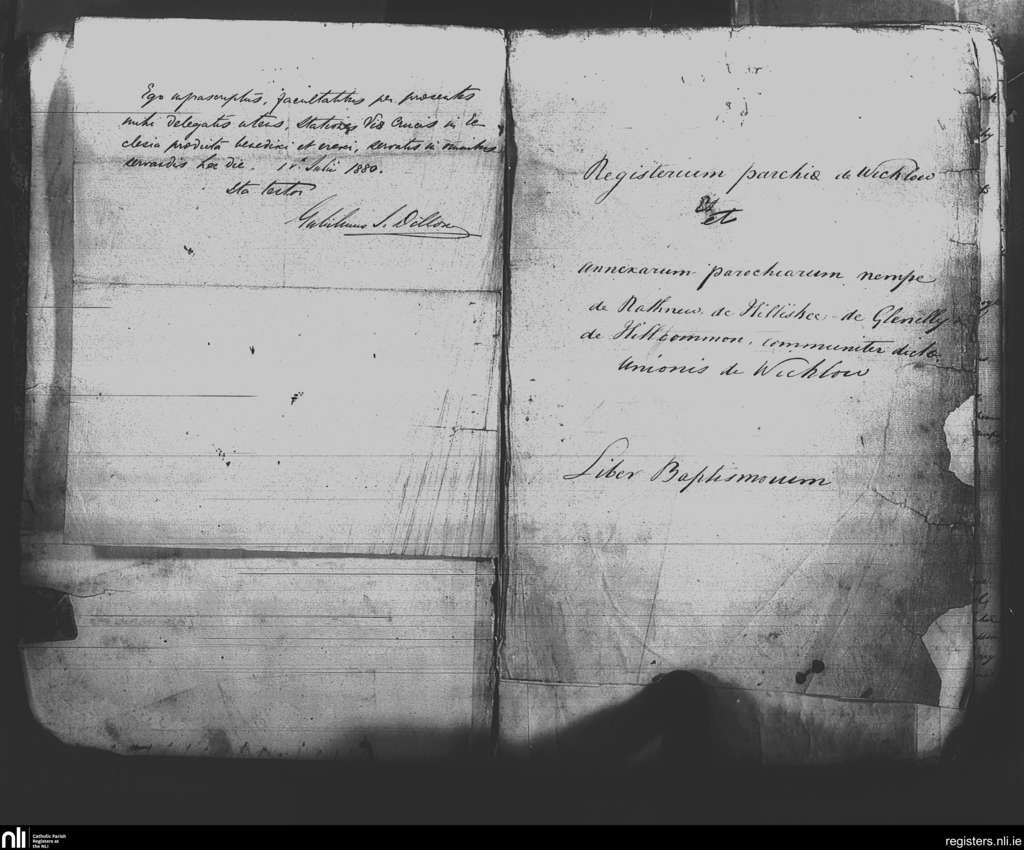 Ego infrascriptus, facultatibus per praesentes
mihi delegatis utens, Stationes Viæ Crucis in Ec-
clesia prædicta benedixi et erexi, servatis in omnibus
servandis hac die. 1ª Julii 1880.
Ita testor
Gulielmus S. Dillon
Registerium parchiæ de Wicklow
et
annexarum parochiarum nempe
de Rathnew, de Killiskee - de Glenelly &
de Killcommon, communiter dictæ
Unionis de Wicklow
Liber Baptismorum
nli
Catholic Parish
Registers at
the NLI
registers.nli.ie